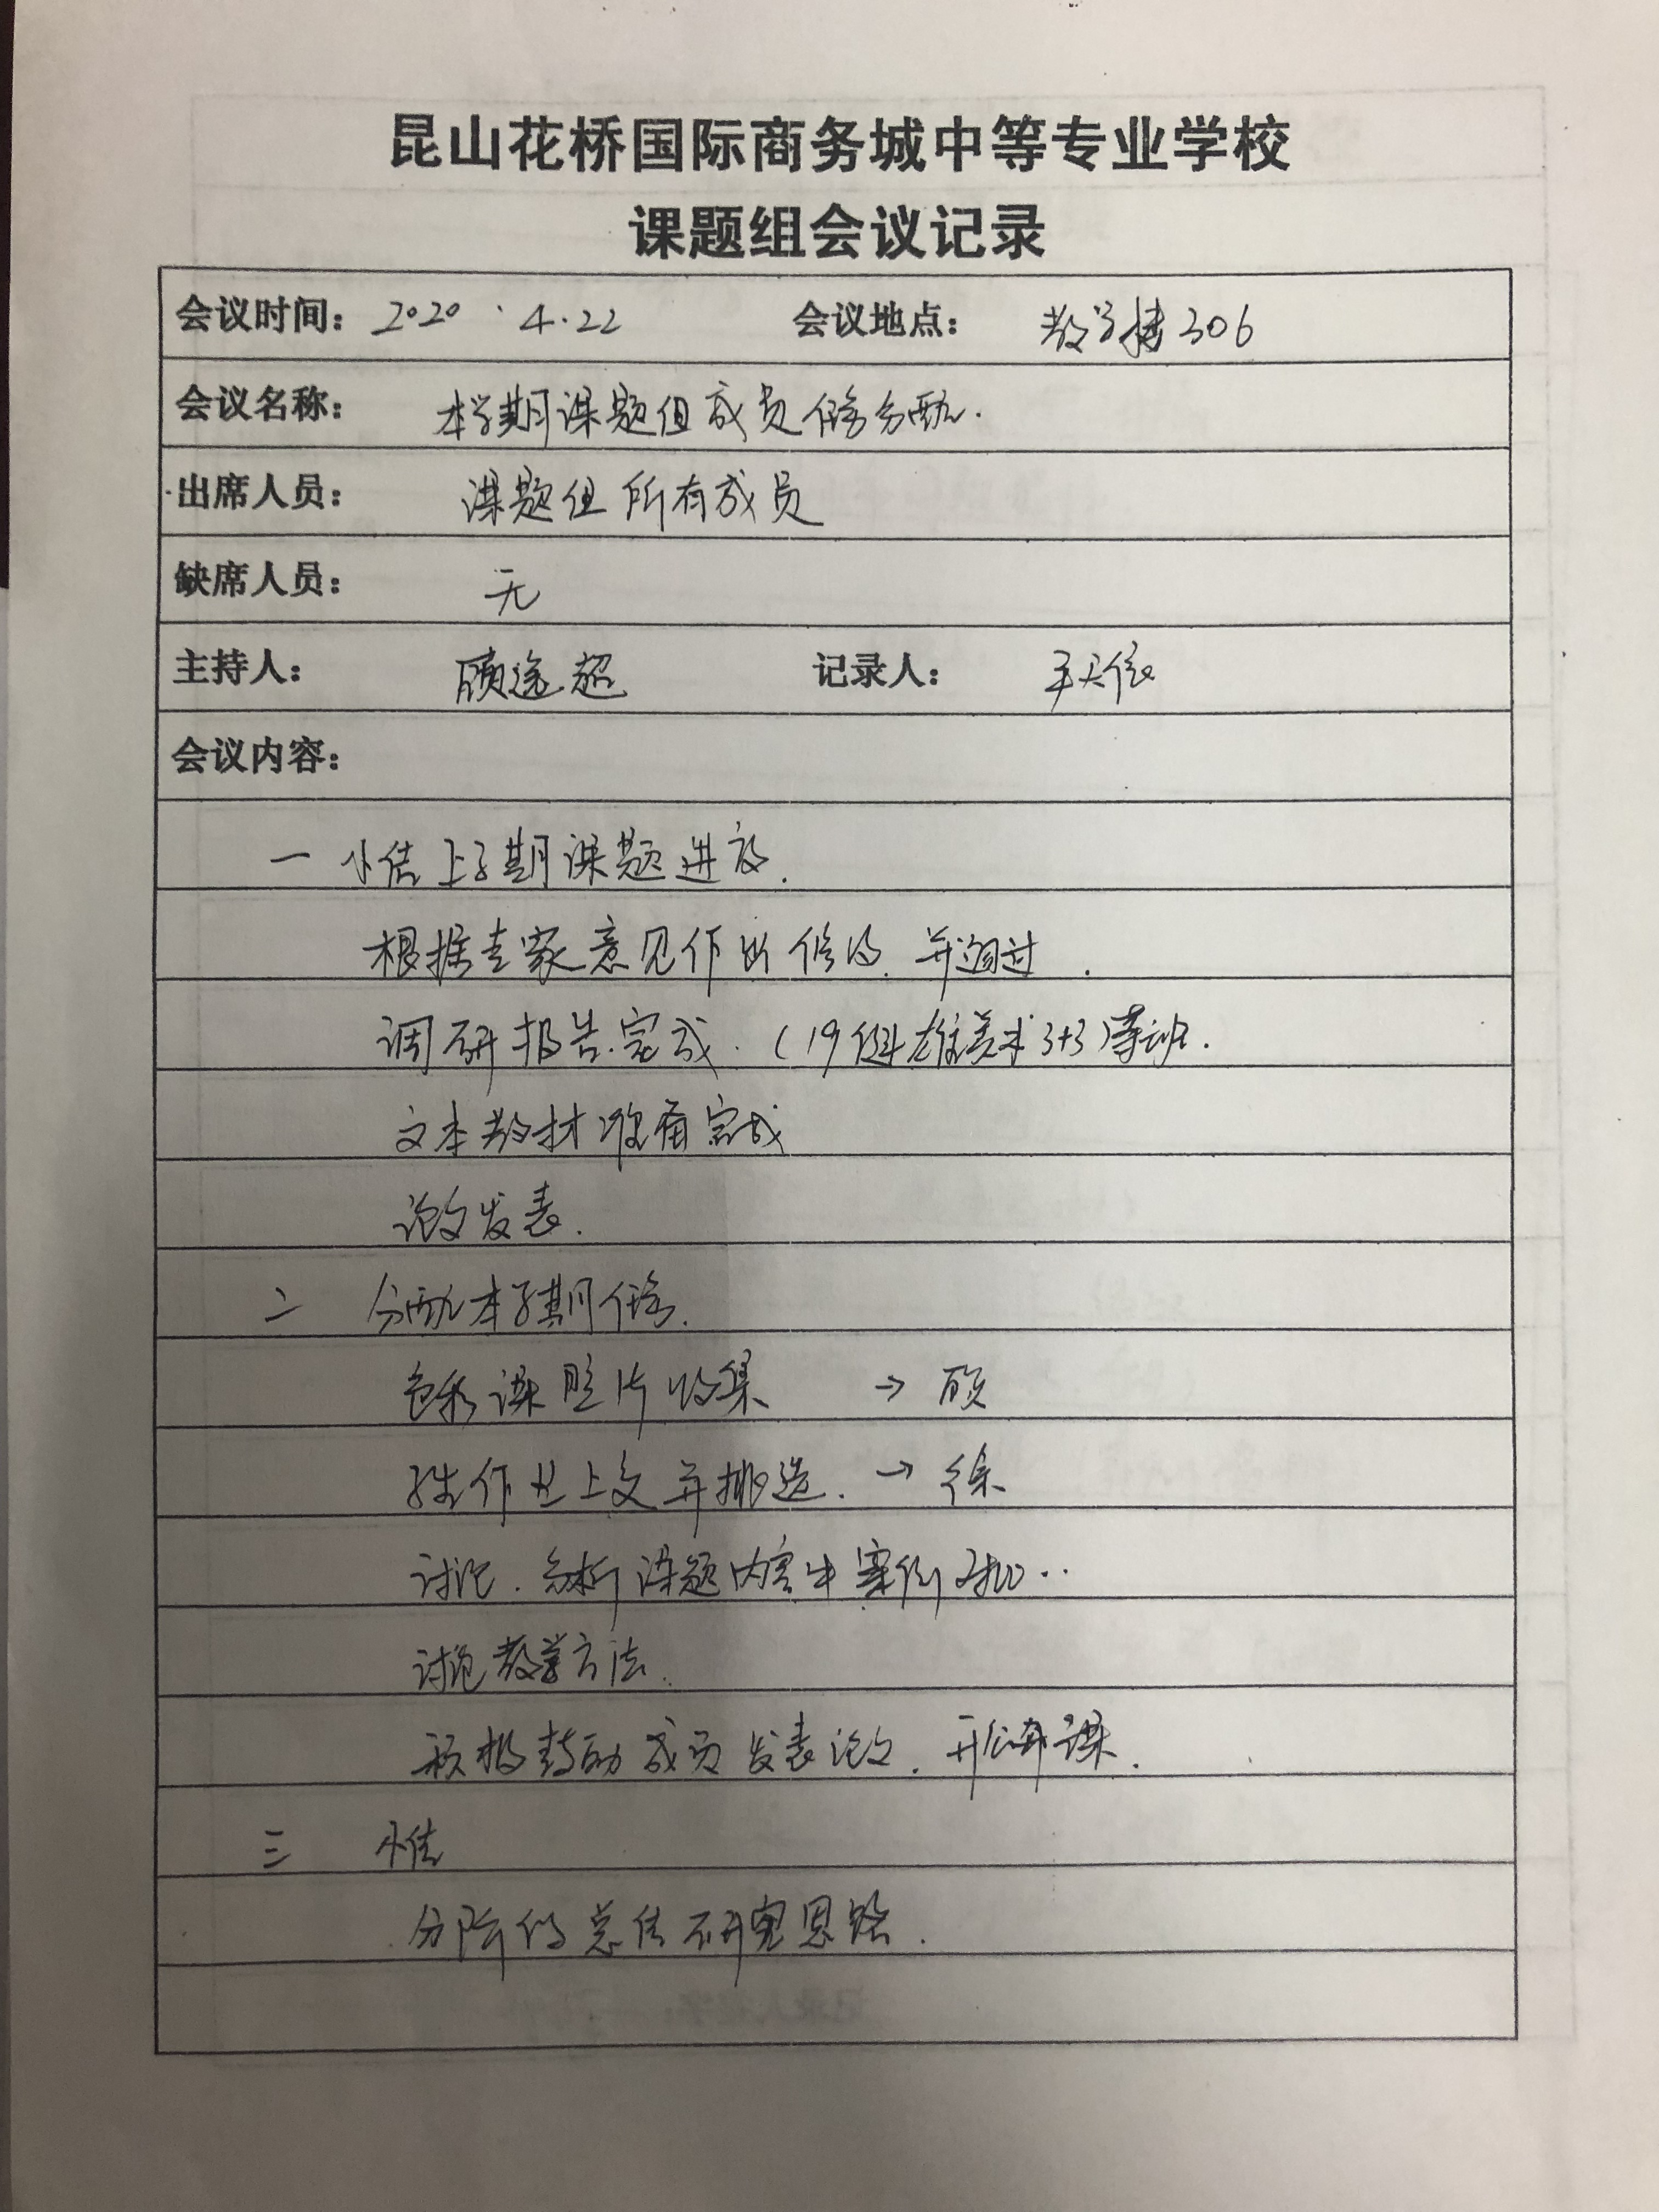 昆山花桥国际商务城中等专业学校
课题组会议记录
会议时间：2020.4.22 会议地点：教学楼306
会议名称：本学期课题组成员任务分配.
出席人员：课题组所有成员
缺席人员：无
主持人：顾逸超 记录人：
会议内容：
一 小结上学期课题进度.
根据专家意见作出修改.并通过.
调研报告完成.(19级 美术3+3)等班.
文本教材准备完成
论文发表.
二 分配本学期任务.
色彩课照片收集 → 顾
作业上交并挑选. → 徐
讨论.分析课题内容中案例
讨论教学方法.
积极鼓励成员发表论文.开公开课.
三 小结
分阶段总结研究思路.